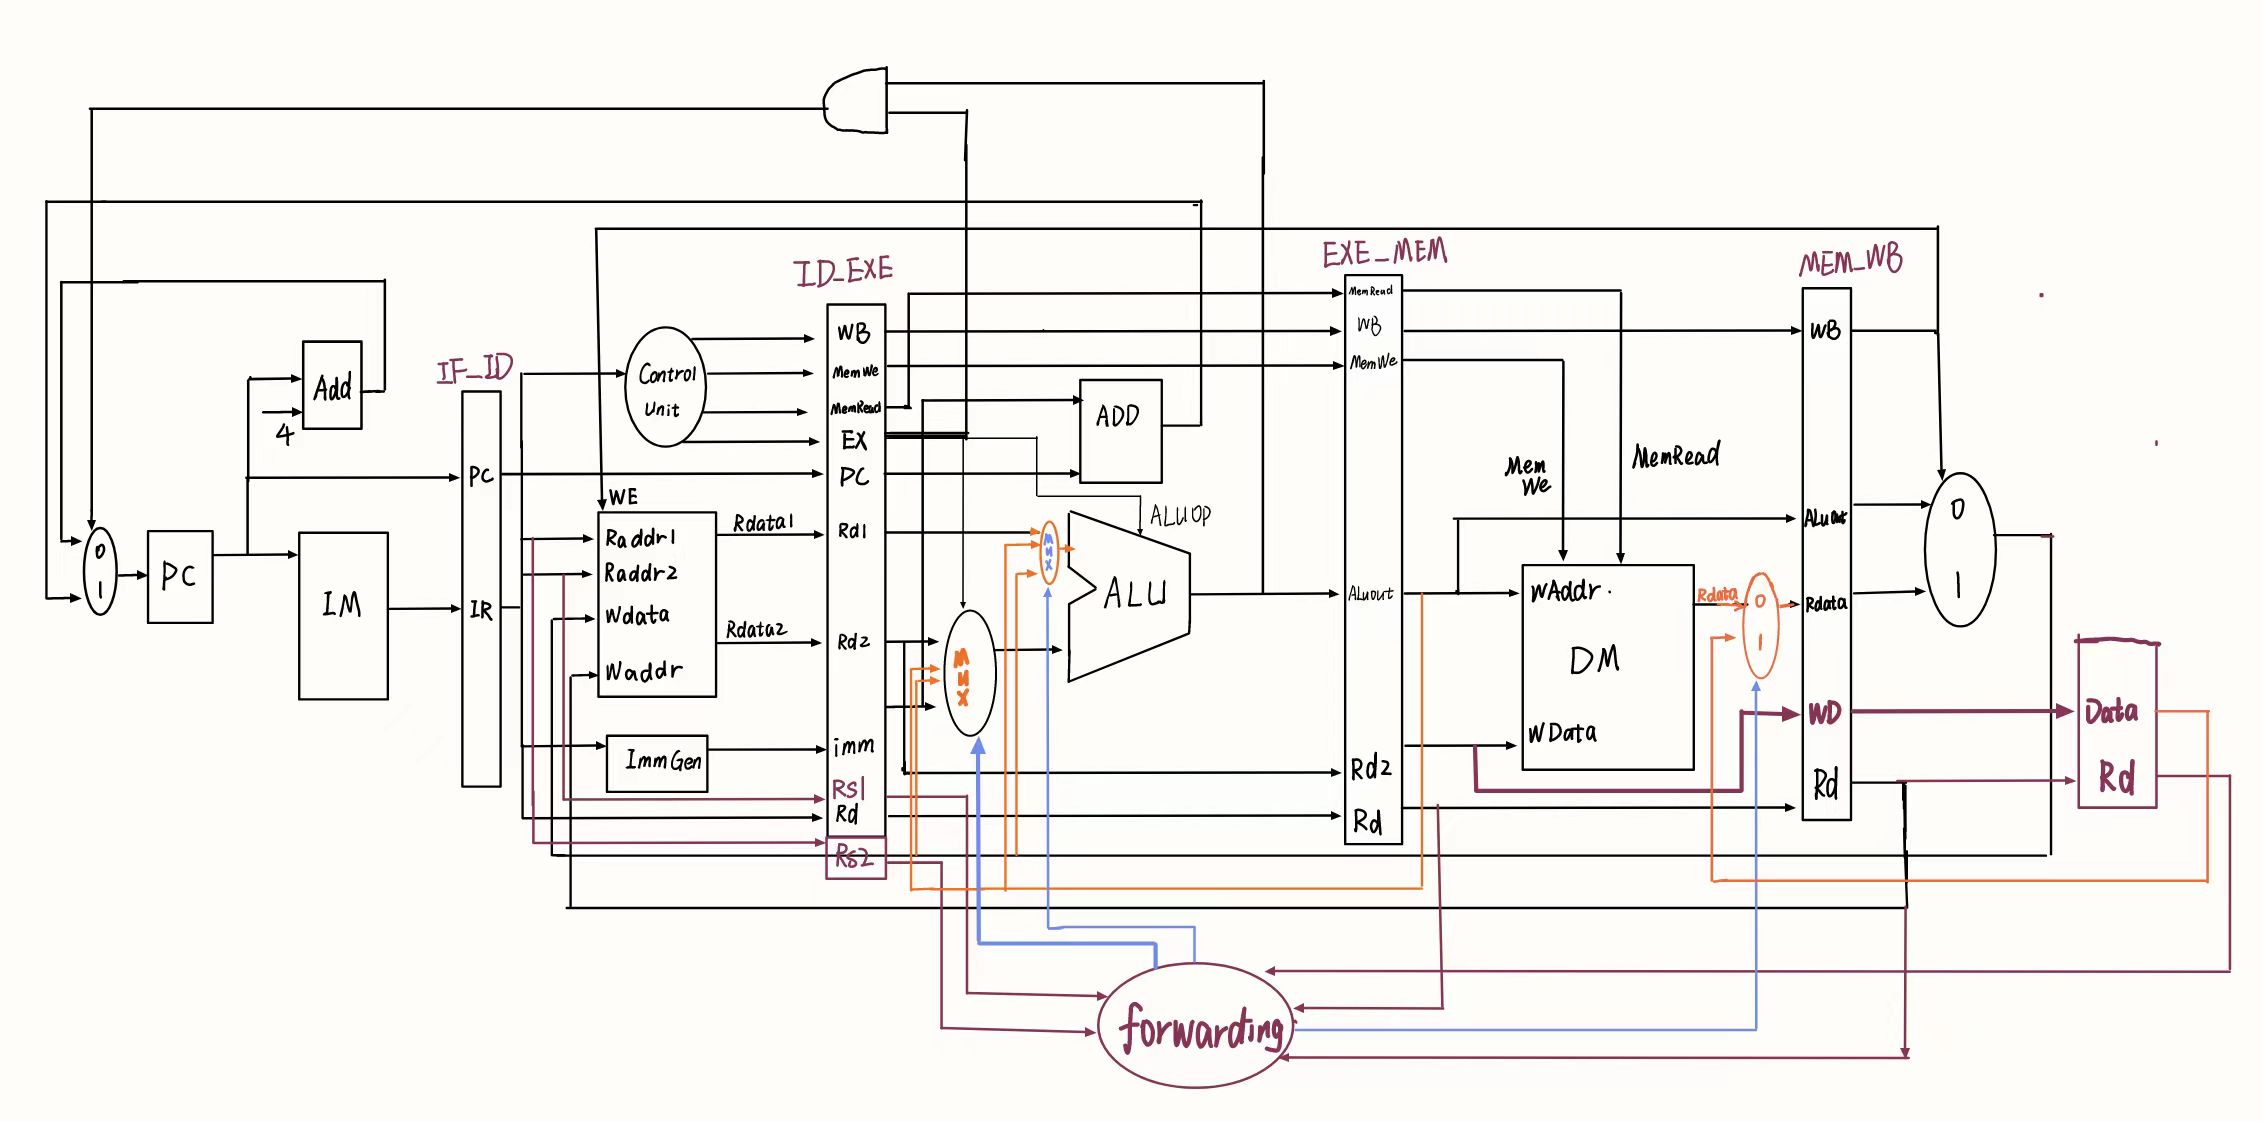 IF_ID
ID_EXE
EXE_MEM
MEM_WB
0
1
PC
4
Add
IM
PC
IR
Control
Unit
WE
Raddr1
Raddr2
Wdata
Waddr
Rdata1
Rdata2
Imm Gen
WB
MemWe
MemRead
EX
PC
Rd1
Rd2
imm
Rs1
Rd
Rs2
mux
mux
ADD
ALUOP
ALU
MemRead
WB
MemWe
ALuout
Rd2
Rd
Mem
We
MemRead
WAddr.
DM
WData
Rdata
0
1
WB
ALuout
Rdata
WD
Rd
0
1
Data
Rd
forwarding